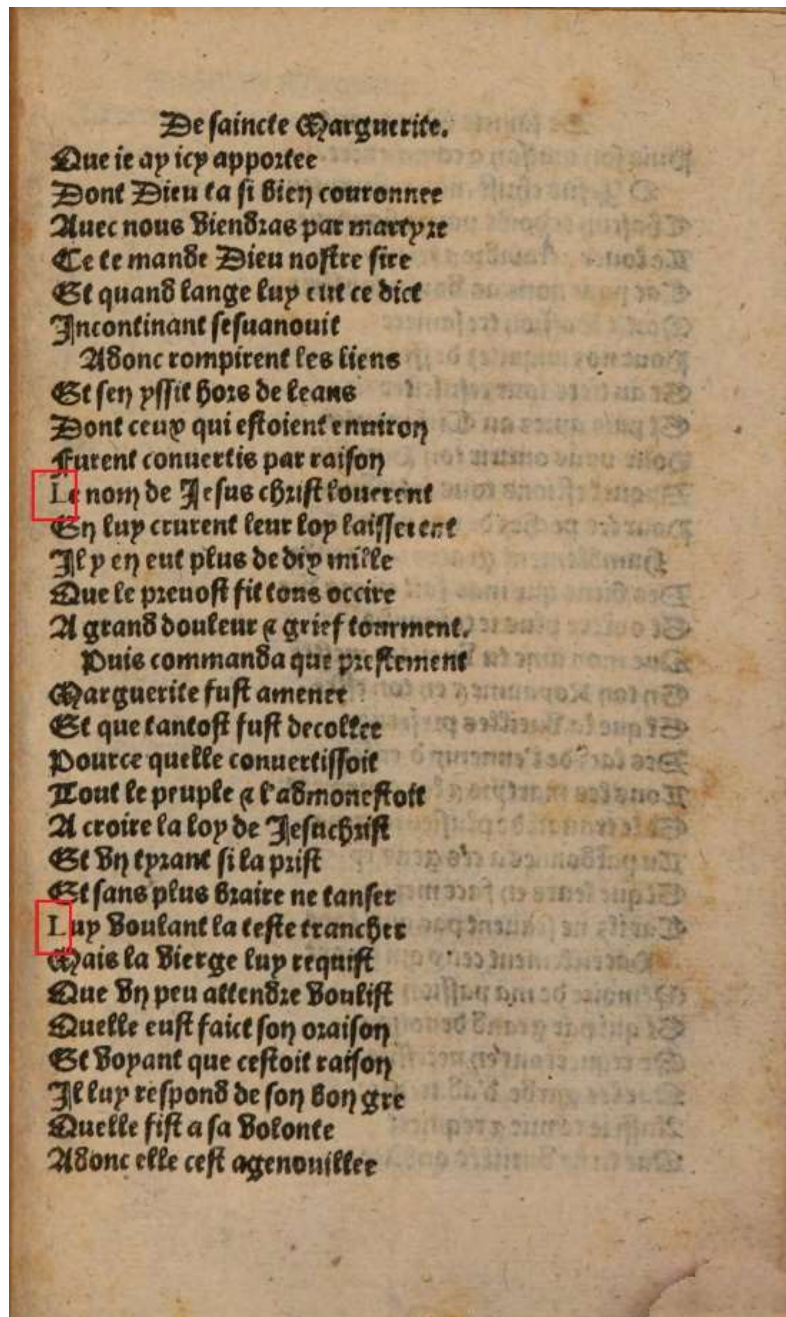 De saincte Marguerite.
Que ie ay icy apportee
Dont Dieu ta si bien couronnee
Auec nous viendras par martyre
Ce te mande Dieu nostre sire
Et quand lange luy eut ce dict
Incontinant sesuanouit
Adonc rompirent les liens
Et sen yssit hors de leans
Dont ceux qui estoient enuiron
Furent conuertis par raison
Le nom de Iesus christ louerent
En luy crurent leur loy laisserent
Il y en eut plus de dix mille
Que le preuost fit tous occire
A grand douleur & grief tourment.
Puis commanda que prestement
Marguerite fust amenee
Et que tantost fust decollee
Pource quelle conuertissoit
Tout le peuple & l'admonestoit
A croire la loy de Iesuchrist
Et vn tyrant si la prist
Et sans plus braire ne tanser
Luy voulant la teste trancher
Mais la vierge luy requist
Que vn peu attendre voulist
Quelle eust faict son oraison
Et voyant que cestoit raison
Il luy respond de son bon gre
Quelle fist a sa volonte
Adonc elle cest agenouillee